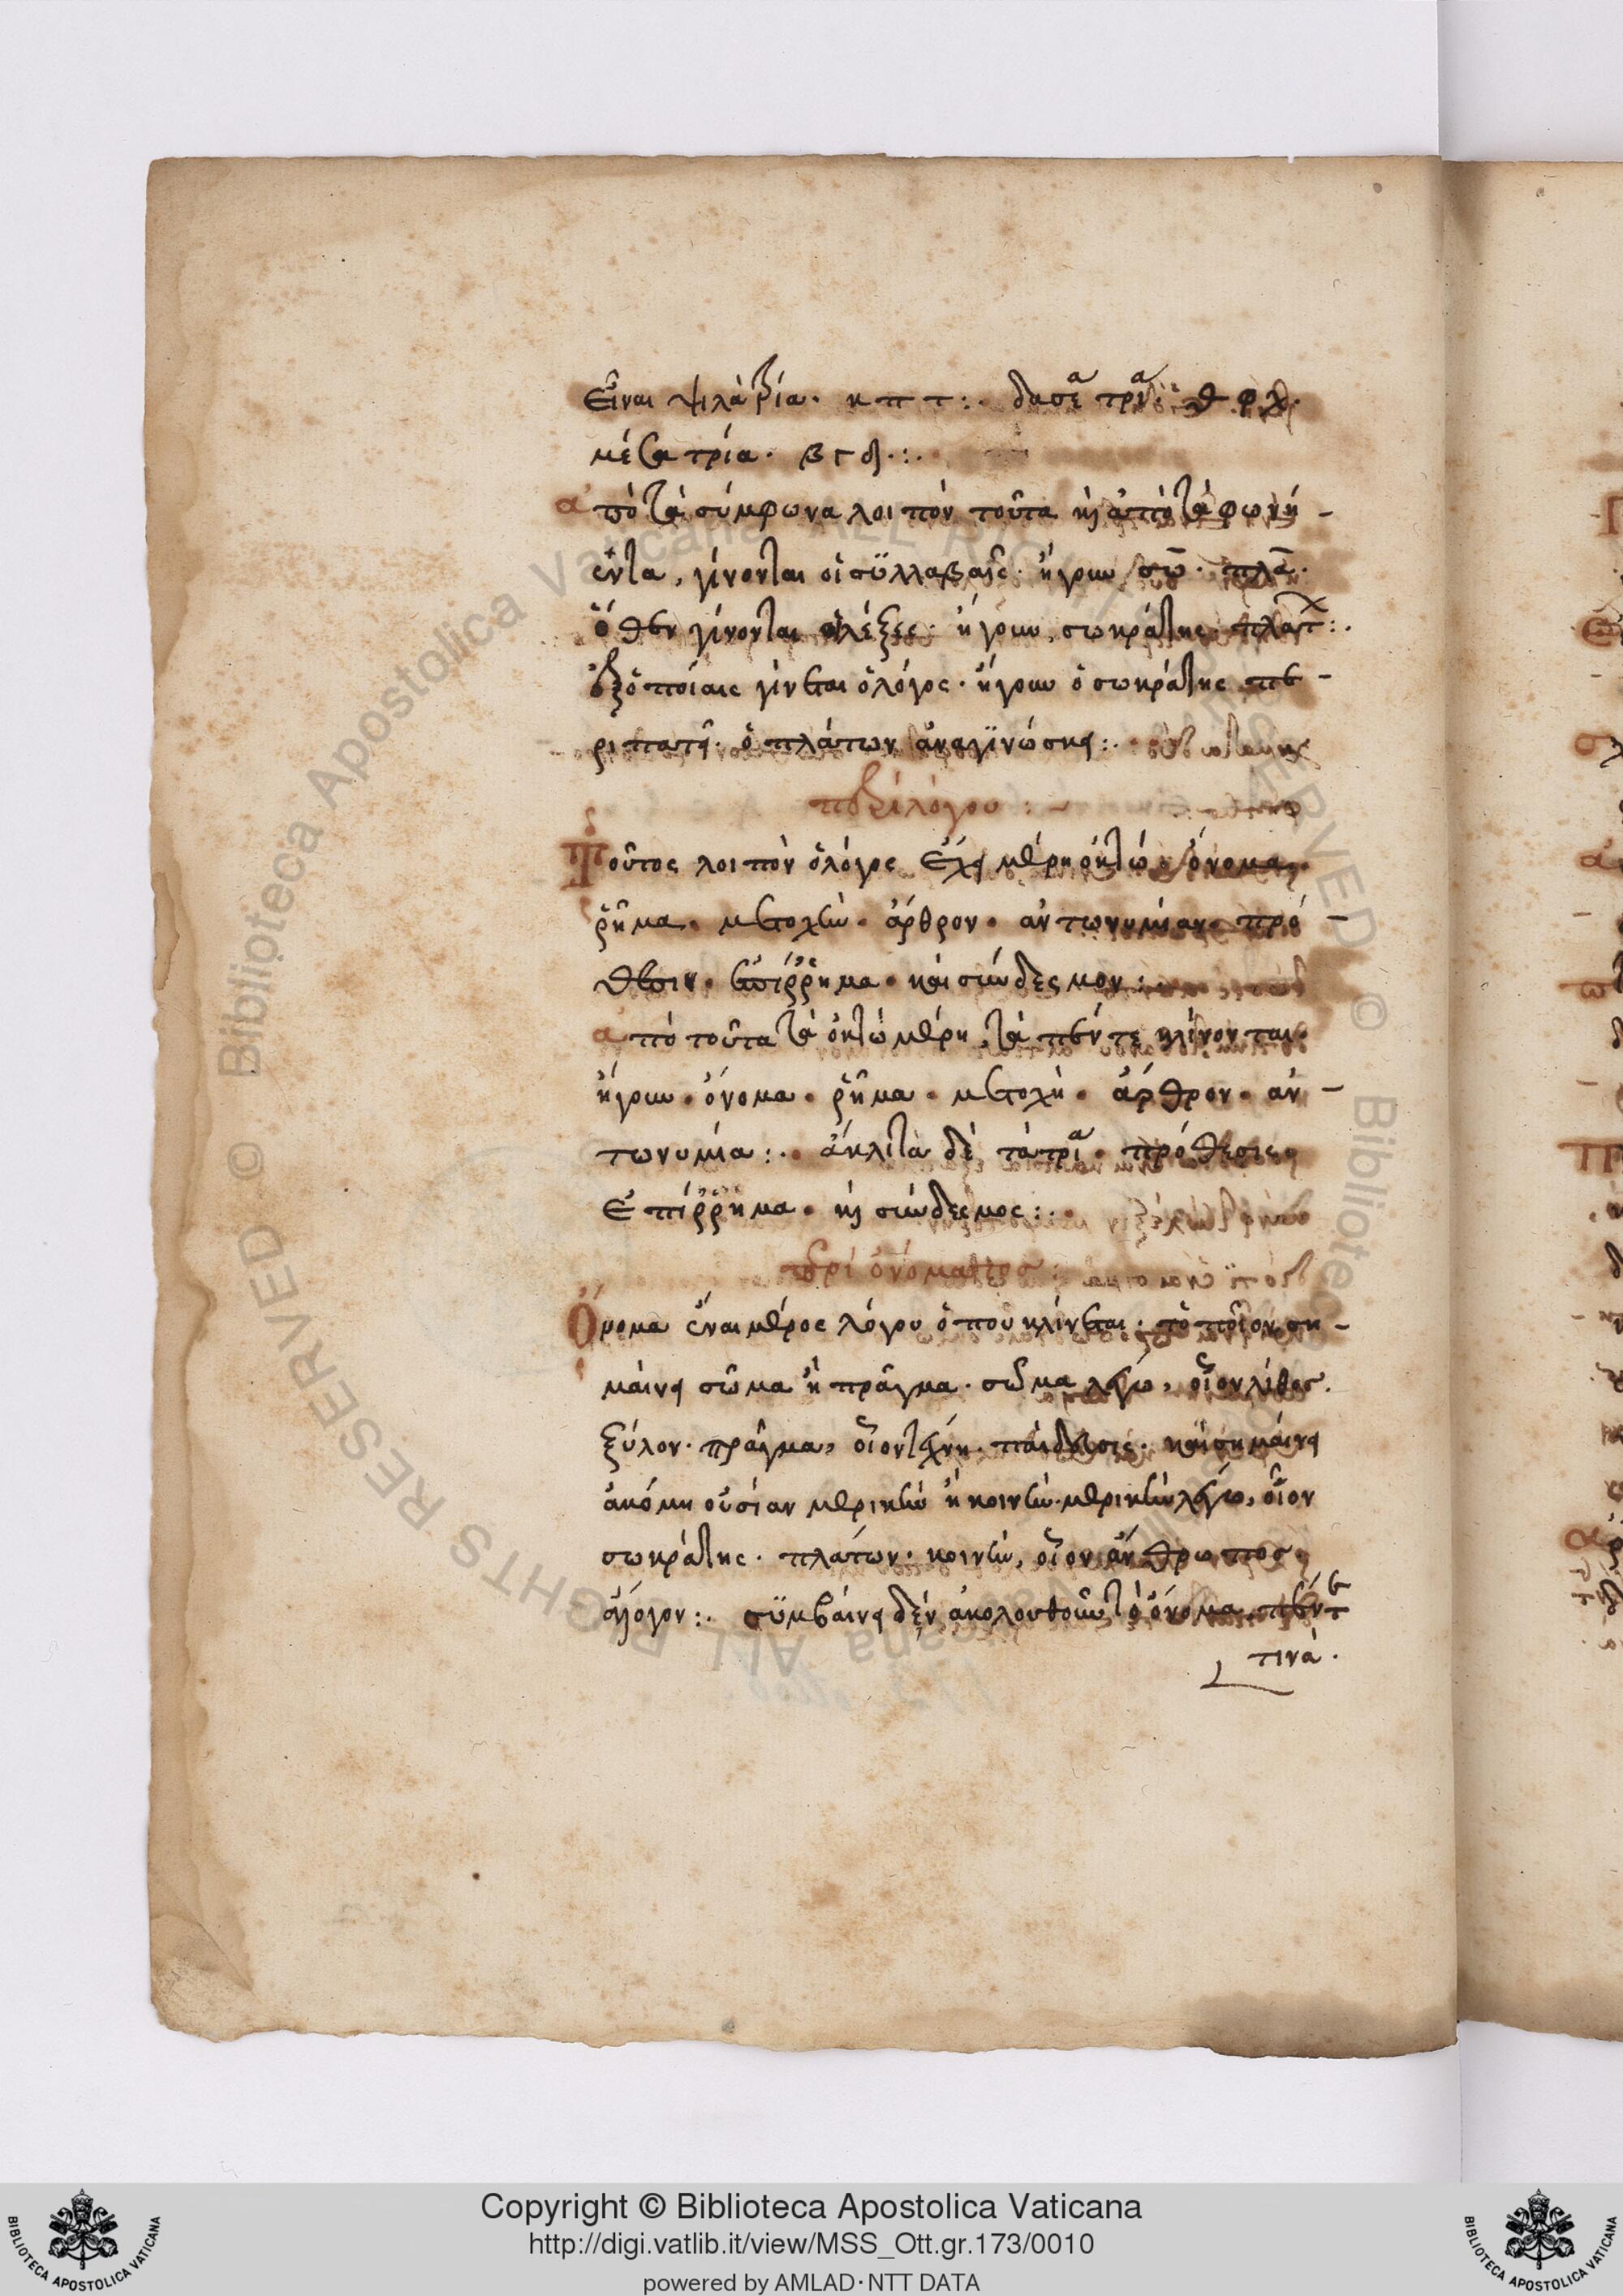 εἶναι ψιλὰ τρία· κ π τ:· δασέα τρία· θ φ χ·
μέσα τρία· β γ δ·:·
ἀπὸ τὰ σύμφωνα λοιπὸν τοῦτα κỳ ἀπὸ τὰ φωνή-
εντα, γίνονται οἱ σϋλλαβαῖς· ἤγουν σω̄· πλᾱ·
ὅθεν γίνονται ᾑ λέξες· ἤγουν, σωκράτης· πλατ:·
ἐξ ὁποίαις γίνεται ὁ λόγος· ἤγουν ὁ σωκράτης πε-
ριπατεῖ· ὁ πλάτων ἀναγϊνώσκει:·
περὶ λόγου:-
Τοῦτος λοιπὸν ὁ λόγος ἔχει μέρη ὀκτώ· ὄνομα,
ῥῆμα· μετοχὴν· ἄρθρον· ἀντωνυμίαν· πρό-
θεσιν· ἐπίῤῥημα· καὶ σύνδεσμον:·
ἀπὸ τοῦτα τὰ ὀκτὼ μέρη, τὰ πέντε κλίνονται·
ἤγουν· ὄνομα· ῥῆμα· μετοχὴ· ἄρθρον· ἀν-
τωνυμία:· ἄκλιτα δὲ τὰ τρία· πρόθεσις
ἐπίῤῥημα· κỳ σύνδεσμος:·
περὶ ὀνόματος:
Ὄνομα ἔναι μέρος λόγου ὁποῦ κλίνεται· τὸ ποῖον ση-
μαίνει σῶμα ἢ πρᾶγμα· σῶμα λέγω, οἷον λίθος.
ξύλον· πρᾶγμα, οἷον τέχνη· παίδευσις· καὶ σημαίνει
ἀκόμη οὐσίαν μερικὴν ἢ κοινὴν· μερικὴν λέγω, οἷον
σωκράτης· πλάτων· κοινὴν, οἷον ἄνθρωπος
ἄλογον:· σϋμβαίνει δὲν ἀκολουθοῦν τὸ ὄνομα πέντε
τινὰ·
Copyright © Biblioteca Apostolica Vaticana
http://digi.vatlib.it/view/MSS_Ott.gr.173/0010
powered by AMLAD·NTT DATA